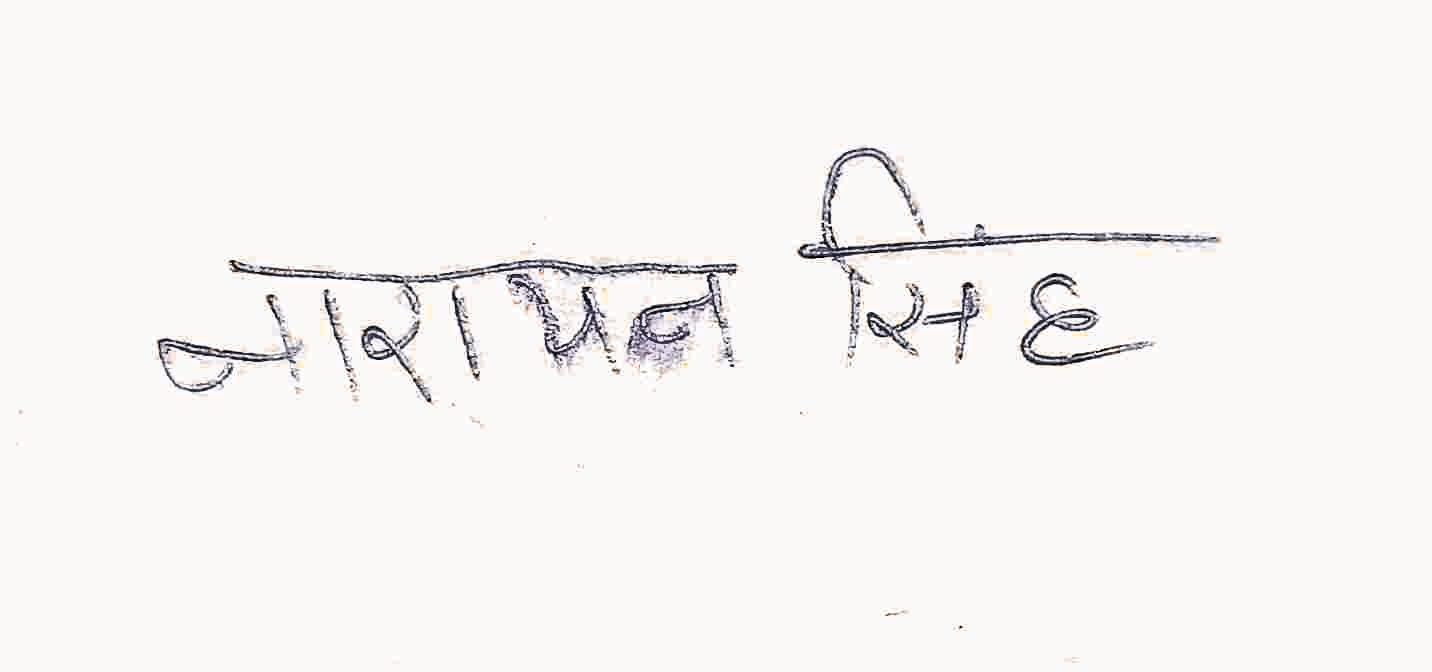 नारायन सिंह